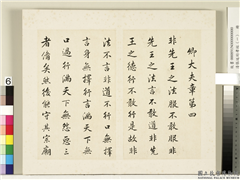 卿大夫章第四
非先王之法服不敢服非
先王之法言不敢道非先
王之德行不敢行是故非
法不言非道不行口無擇
言身無擇行言滿天下無
口過行滿天下無怨惡三
者備矣然後能守其宗廟
6